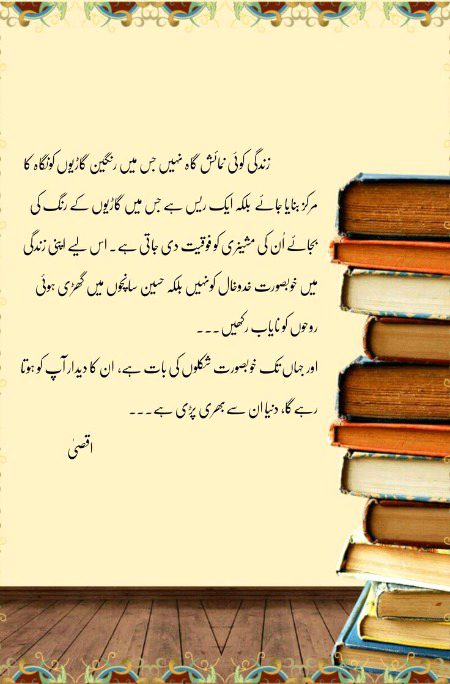 زندگی کوئی نمائش گاہ نہیں جس میں رنگین گاڑیوں کونگاہ کا
مرکز بنایا جائے بلکہ ایک ریس ہے جس میں گاڑیوں کے رنگ کی
بجائے اُن کی مشینری کو فوقیت دی جاتی ہے۔ اس لیے اپنی زندگی
میں خوبصورت خدوخال کونہیں بلکہ حسین سانچوں میں گھڑی ہوئی
روحوں کو نایاب رکھیں۔۔۔
اور جہاں تک خوبصورت شکلوں کی بات ہے، ان کا دیدار آپ کو ہوتا
رہے گا، دنیا ان سے بھری پڑی ہے۔۔۔
اقصیٰ